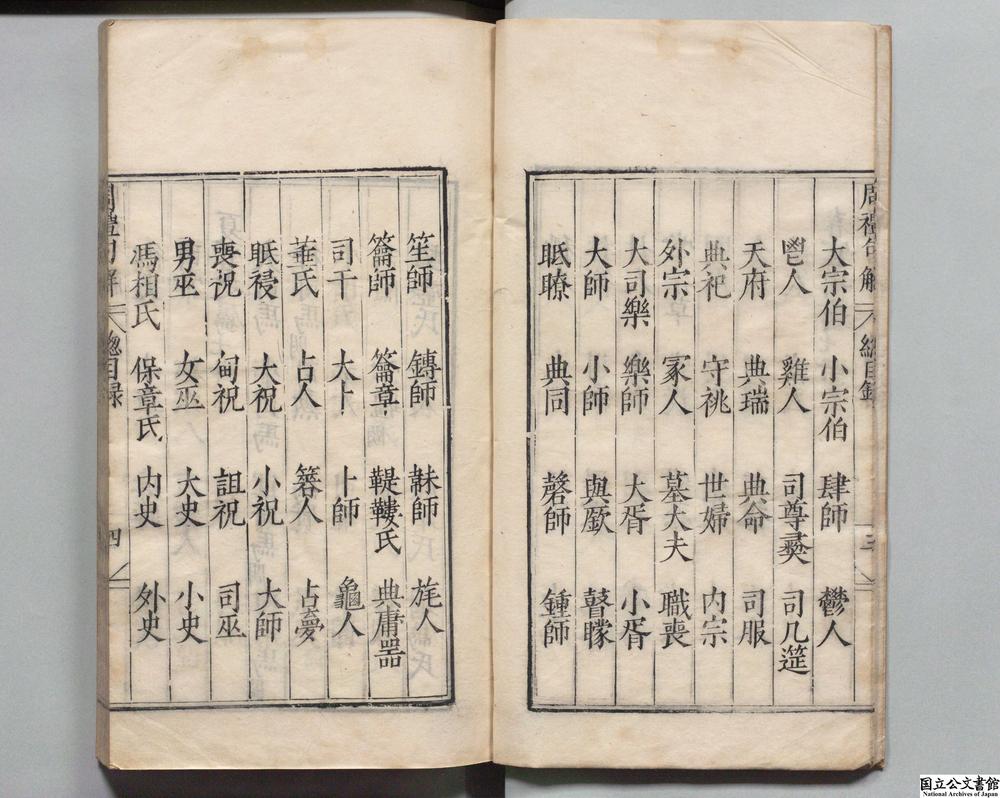 周禮句解 總目録 三
大宗伯 小宗伯 肆師 鬱人
鬯人 雞人 司尊彝 司几筵
天府 典瑞 典命 司服
典祀 守祧 世婦 内宗
外宗 冢人 墓大夫 職喪
大司樂 樂師 大胥 小胥
大師 小師 瞽矇
眂瞭 典同 磬師 鍾師
笙師 鎛師 韎師 旄人
籥師 籥章 鞮鞻氏 典庸器
司干 大卜 卜師 龜人
菙氏 占人 占夢
眂祲 大祝 小祝 大師
喪祝 甸祝 詛祝 司巫
男巫 女巫 大史 小史
馮相氏 保章氏 内史 外史
周禮句解 總目録 四
国立公文書館
National Archives of Japan